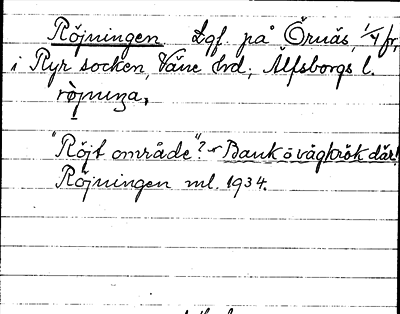 Röjningen Lgf. på Örnäs, 1/4 fr,
i Ryr socken, Väne hrd; Älfsborgs l.
ròjnuŋa,
"Röjt område"? Bank o vägkrök där!
Röjningen ml. 1934.